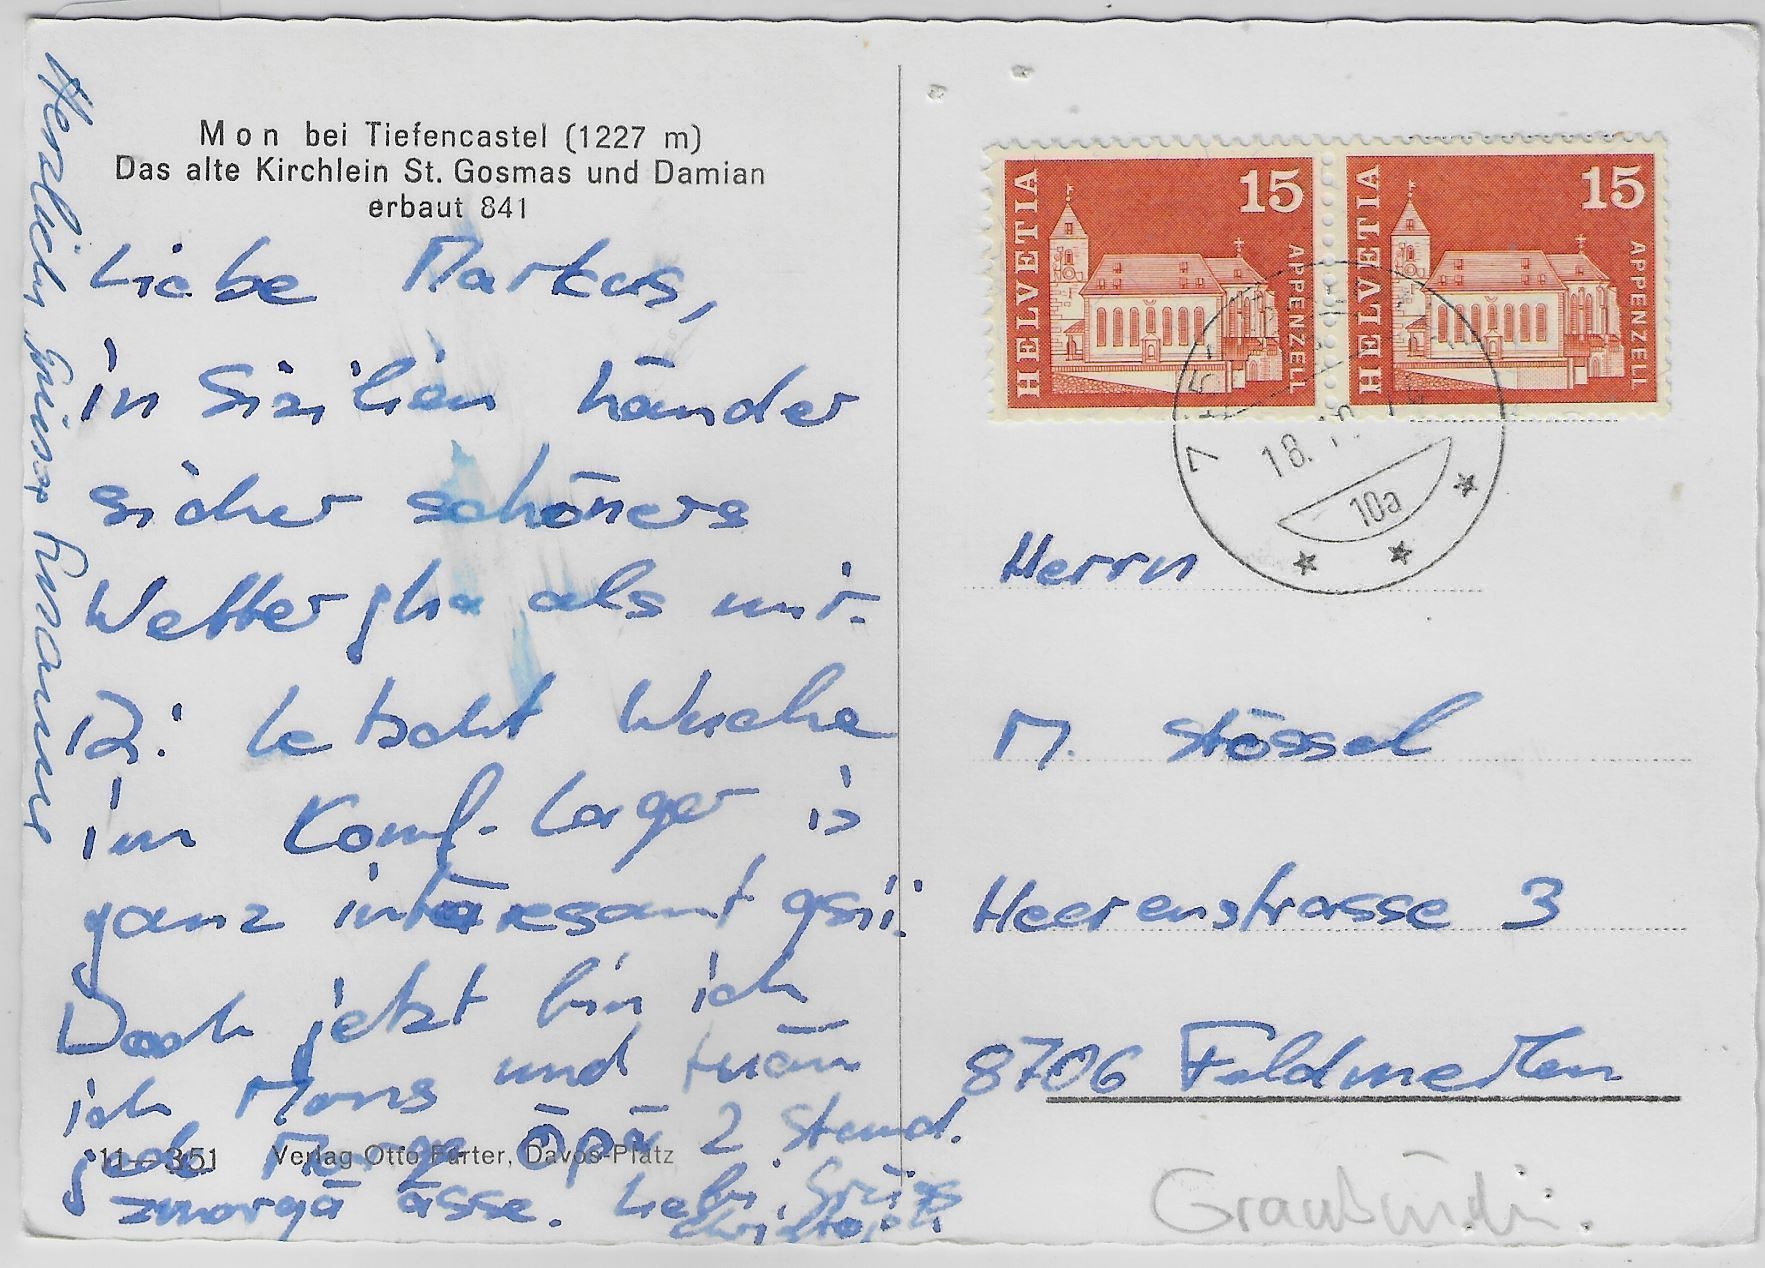 Mon bei Tiefencastel (1227 m)
Das alte Kirchlein St. Gosmas und Damian
erbaut 841
Liebe Markus,
in Sizilien händer
sicher schöners
Wetter gha als mir.
Di letscht Wuche
im Konf-Lager is
ganz intäresant gsii.
Doch jetzt bin ich
ich Mons und tuän
jede Morge öpä 2 Stund.
zmorgä ässe. Liebi Grüss
Christoph
Herzlichi Grüsse Susanne
11-351 Verlag Otto Furter, Davos-Platz
HELVETIA 15 APPENZELL
HELVETIA 15 APPENZELL
18.
10a
Herrn
M. Stössel
Heerenstrasse 3
8706 Feldmeilen
Graubündn.